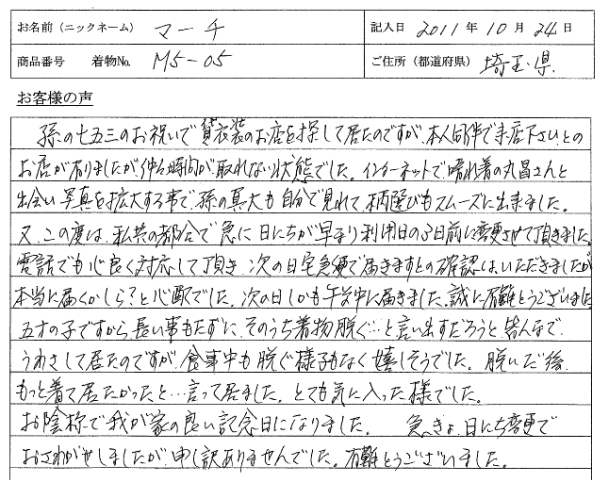 お名前(ニックネーム) マーチ 記入日 2011年10月24日
商品番号 着物No. M5-05 ご住所(都道府県) 埼玉県
お客様の声
孫の七五三のお祝いで貸衣装のお店を探して居たのですが、本人同伴で来店下さいとの
お店が有りましたが仲々時間が取れない状態でした。インターネットで晴れ着の丸昌さんと
出会い写真を拡大する事で、孫の真大も自分で見れて、柄選びもスムーズに出来ました。
又、この度は、私共の都合で急に日にちが早まり利用日の3日前に変更させて頂きました。
電話でも心良く対応して頂き 次の日宅急便で届きますとの確認は、いただきましたが
本当に届くかしら?と心配でした。次の日しかも午前中に届きました。誠に有難とうございました
五才の子ですから長い事もたずに、そのうち着物脱ぐ…と言い出すだろうと皆んなで、
うわさして居たのですが、食事中も脱ぐ様子もなく嬉しそうでした。脱いだ後、
もっと着て居たかったと…言って居ました。とても気に入った様でした。
お陰様で我が家の良い記念日になりました。 急きょ、日にち変更で
おさわがせしましたが、申し訳ありませんでした。有難とうございました。